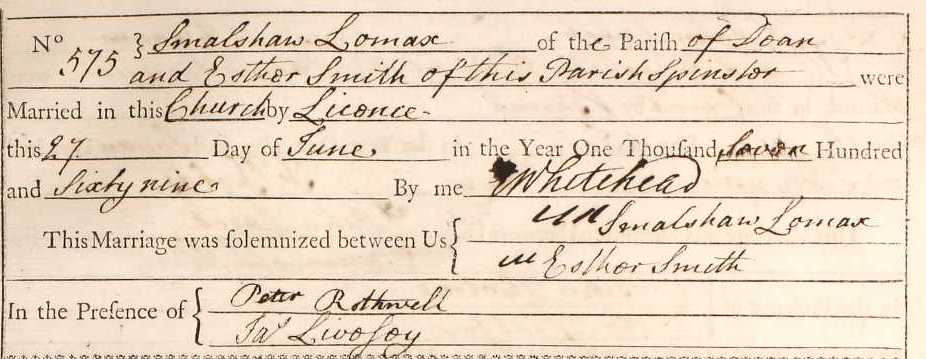 No 575 } Smalshaw Lomax of the Parish of Dean
and Esther Smith of this Parish Spinster were
Married in this Church by Licence
this 27 Day of June in the Year One Thousand Seven Hundred
and Sixty nine By me Whitehead
This Marriage was solemnized between Us { Smalshaw Lomax
Esther Smith
In the Presence of { Peter Rothwell
Jas Livesey